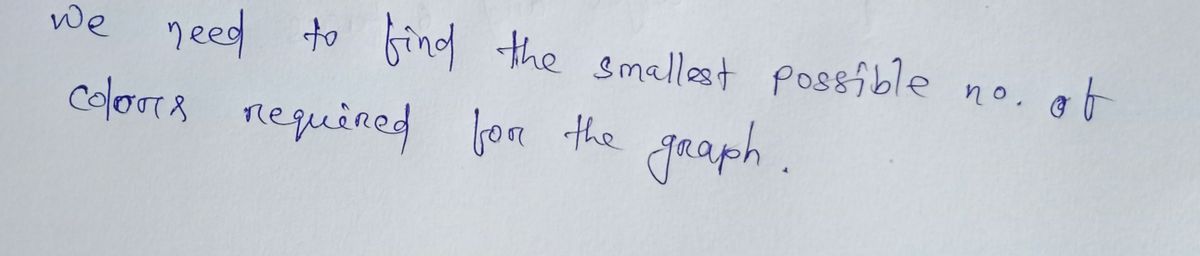 We need to find the smallest possible no. of
colors required for the graph.